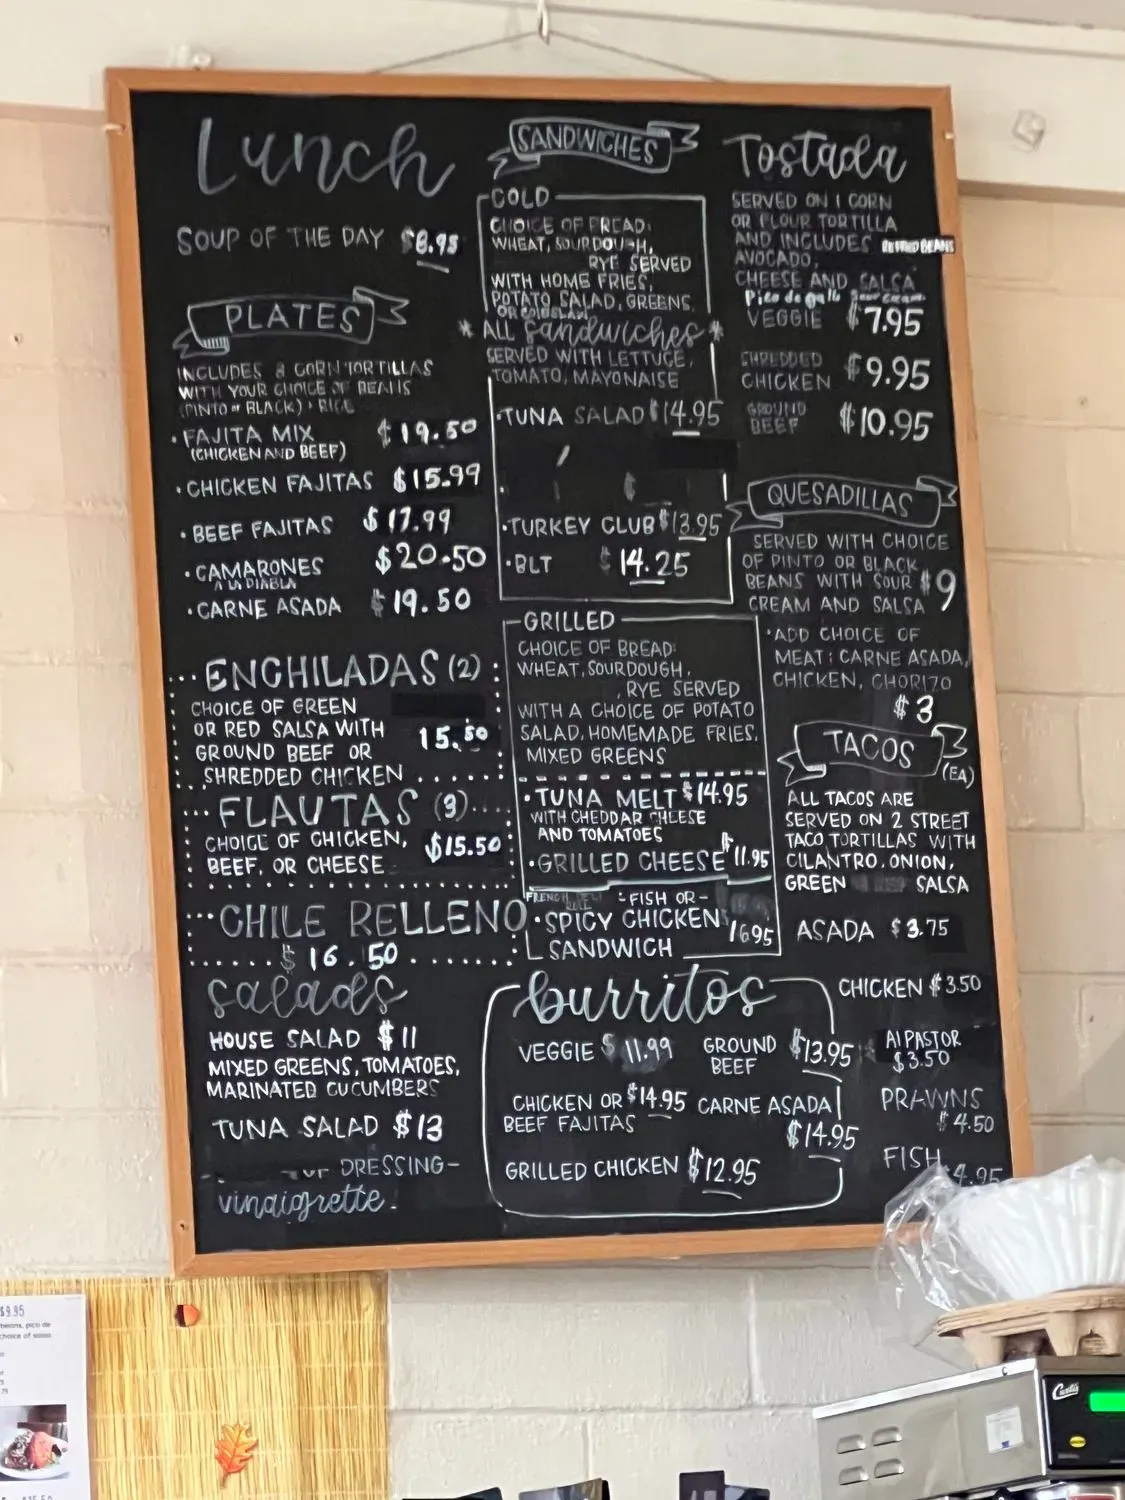 Lunch
SOUP OF THE DAY $8.95
PLATES
INCLUDES 3 CORN TORTILLAS
WITH YOUR CHOICE OF BEANS
(PINTO or BLACK) + RICE
· FAJITA MIX $19.50
(CHICKEN AND BEEF)
· CHICKEN FAJITAS $15.99
· BEEF FAJITAS $17.99
· CAMARONES $20.50
A LA DIABLA
· CARNE ASADA $19.50
ENCHILADAS (2)
CHOICE OF GREEN
OR RED SALSA WITH
GROUND BEEF OR 15.50
SHREDDED CHICKEN
FLAUTAS (3)
CHOICE OF CHICKEN, $15.50
BEEF, OR CHEESE
CHILE RELLENO
$16.50
salads
HOUSE SALAD $11
MIXED GREENS, TOMATOES,
MARINATED CUCUMBERS
TUNA SALAD $13
DRESSING-
vinaigrette.
SANDWICHES
COLD
CHOICE OF BREAD:
WHEAT, SOURDOUGH,
RYE SERVED
WITH HOME FRIES,
POTATO SALAD, GREENS.
OR COLESLAW
* ALL Sandwiches *
SERVED WITH LETTUCE,
TOMATO, MAYONAISE
· TUNA SALAD $14.95
· TURKEY CLUB $13.95
· BLT $14.25
GRILLED
CHOICE OF BREAD:
WHEAT, SOURDOUGH,
, RYE SERVED
WITH A CHOICE OF POTATO
SALAD, HOMEMADE FRIES,
MIXED GREENS
· TUNA MELT $14.95
WITH CHEDDAR CHEESE
AND TOMATOES
· GRILLED CHEESE $11.95
FRENCH DELI ROLL
- FISH OR -
· SPICY CHICKEN
SANDWICH 16.95
burritos
VEGGIE $11.99
CHICKEN OR $14.95
BEEF FAJITAS
GRILLED CHICKEN $12.95
GROUND $13.95
BEEF
CARNE ASADA
$14.95
Tostada
SERVED ON 1 CORN
OR FLOUR TORTILLA
AND INCLUDES REFRIED BEANS
AVOCADO,
CHEESE AND SALSA
Pico de gallo Sour cream
VEGGIE $7.95
SHREDDED
CHICKEN $9.95
GROUND
BEEF $10.95
QUESADILLAS
SERVED WITH CHOICE
OF PINTO OR BLACK
BEANS WITH SOUR $9
CREAM AND SALSA
· ADD CHOICE OF
MEAT: CARNE ASADA,
CHICKEN, CHORIZO
$3
TACOS
(EA)
ALL TACOS ARE
SERVED ON 2 STREET
TACO TORTILLAS WITH
CILANTRO, ONION,
GREEN SALSA
ASADA $3.75
CHICKEN $3.50
Al PASTOR
$3.50
PRAWNS
$4.50
FISH
4.95
$9.95
beans, pico de
choice of salsa
Curtis